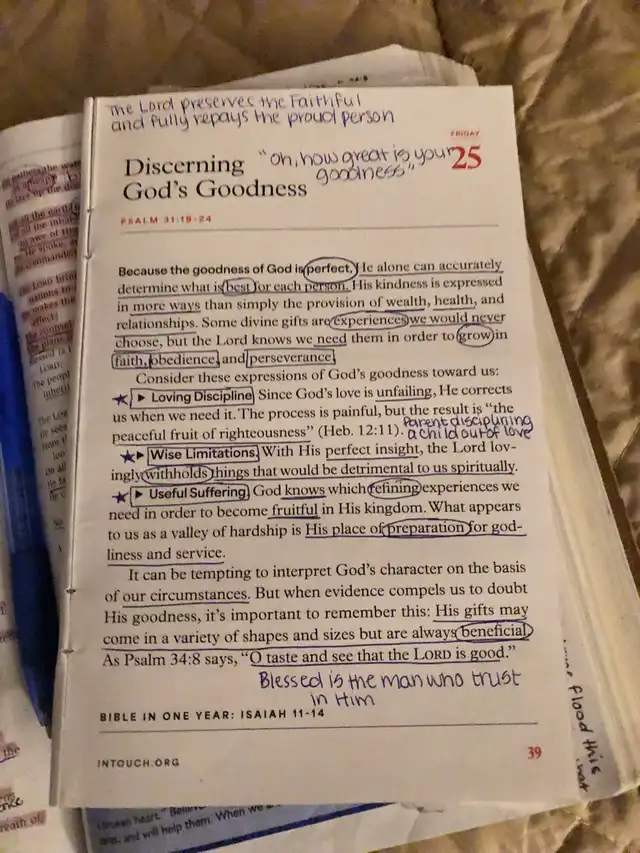 The Lord preserves the Faithful
and fully repays the proud person
FRIDAY
25
Discerning
God's Goodness
"Oh, how great is your
goodness"
PSALM 31:19-24
Because the goodness of God is perfect, He alone can accurately
determine what is best for each person. His kindness is expressed
in more ways than simply the provision of wealth, health, and
relationships. Some divine gifts are experiences we would never
choose, but the Lord knows we need them in order to grow in
faith, obedience, and perseverance.
Consider these expressions of God's goodness toward us:
★ ▸ Loving Discipline Since God's love is unfailing, He corrects
us when we need it. The process is painful, but the result is "the
peaceful fruit of righteousness" (Heb. 12:11).
Parent discipuning
a child out of love
★ ▸ Wise Limitations With His perfect insight, the Lord lov-
ingly withholds things that would be detrimental to us spiritually.
★ ▸ Useful Suffering God knows which refining experiences we
need in order to become fruitful in His kingdom. What appears
to us as a valley of hardship is His place of preparation for god-
liness and service.
It can be tempting to interpret God's character on the basis
of our circumstances. But when evidence compels us to doubt
His goodness, it's important to remember this: His gifts may
come in a variety of shapes and sizes but are always beneficial.
As Psalm 34:8 says, "O taste and see that the LORD is good."
Blessed is the man who trust
in Him
BIBLE IN ONE YEAR: ISAIAH 11-14
INTOUCH.ORG
39
flood this
and will help them. When we